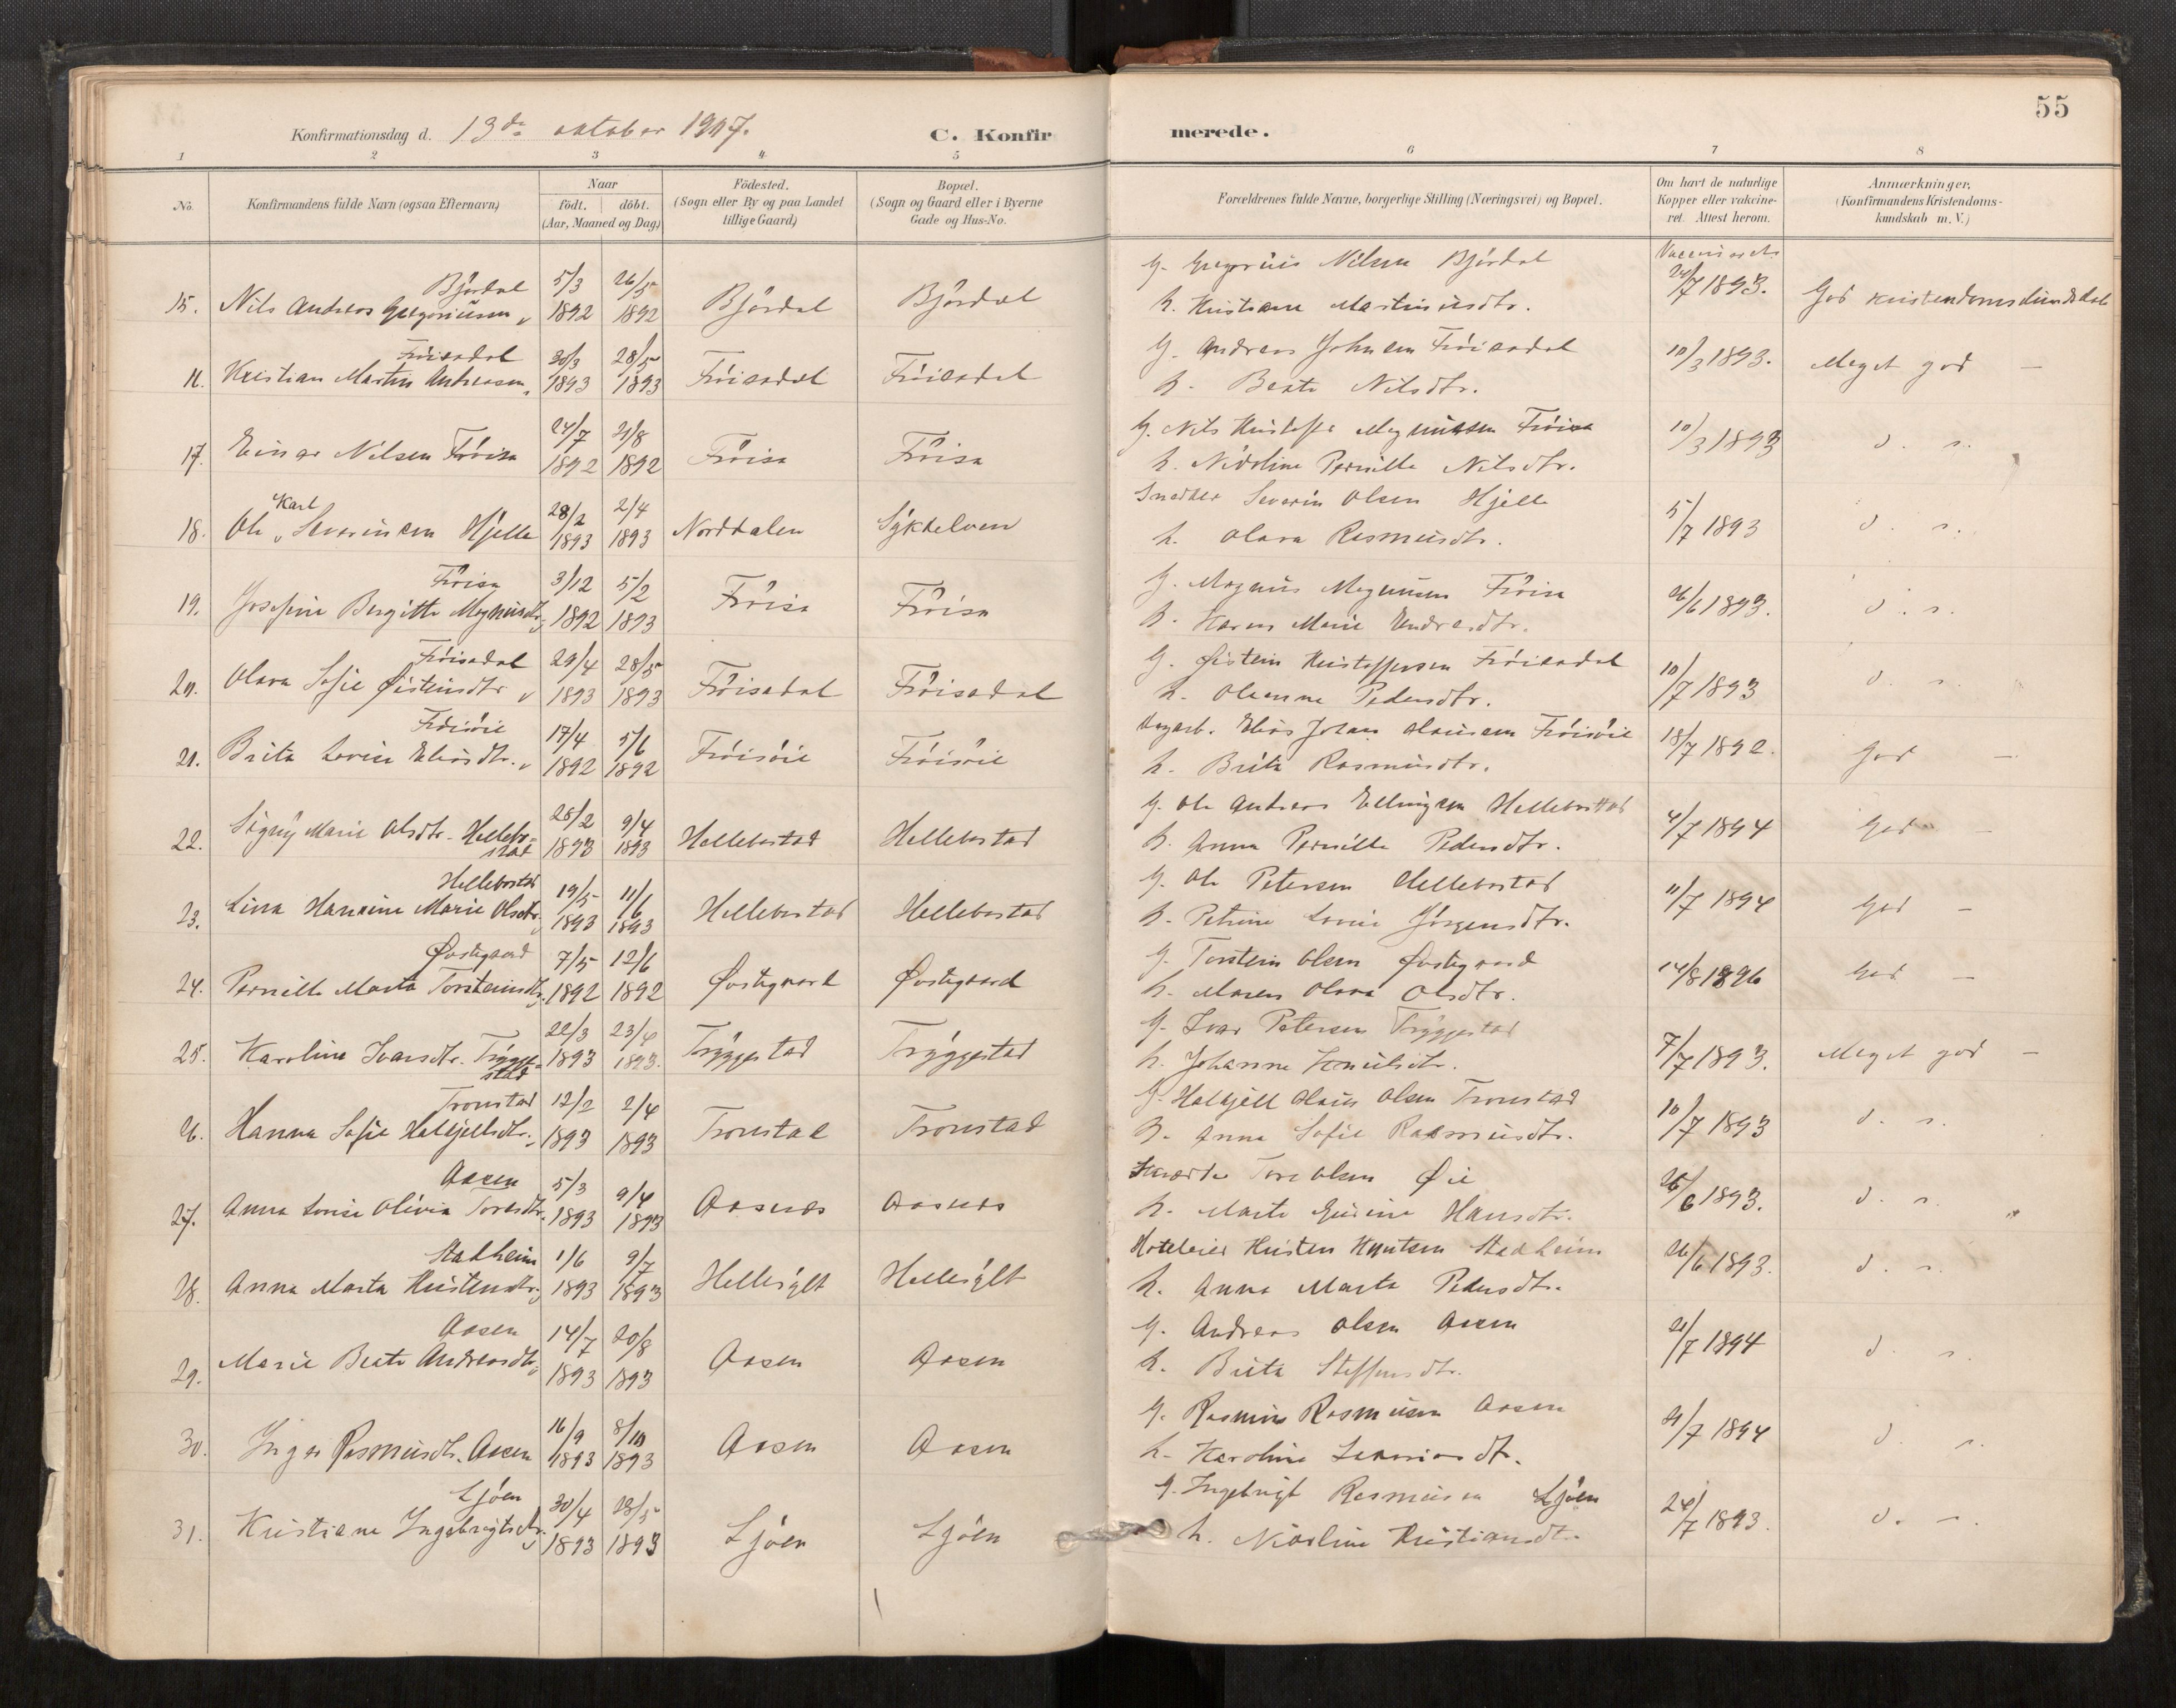 55
Konfirmationsdag d. 13de oktober 1907.
C. Konfirmerede.
1 2 3 4 5 6 7 8
No. Konfirmandens fulde Navn (ogsaa Efternavn) Naar födt. döbt. (Aar, Maaned og Dag) Födested. (Sogn eller By og paa Landet tillige Gaard) Bopæl. (Sogn og Gaard eller i Byerne Gade og Hus-No. Forældrenes fulde Navne, borgerlige Stilling (Næringsvei) og Bopæl. Om havt de naturlige Kopper eller vakcineret. Attest herom. Anmærkninger, (Konfirmandens Kristendomskundskab m. V.)
Björdal 5/3 26/5 G. Gregorius Nilsen Björdal
15. Nils Andreas Gregoriusen 1892 1892 Björdal Björdal h. Kristiane Martinusdtr. 24/7 1893. God kristendomskundskab
Fröisadal 30/3 28/5 G. Andreas Johnsen Fröisadal
16. Kristian Martin Andreasen 1893 1893 Fröisadal Fröisadal h. Beate Nilsdtr. 10/3 1893. Meget god —
24/7 21/8 G. Nils Kristoffer Magnussen Fröisa
17. Einar Nilsen Fröisa 1892 1892 Fröisa Fröisa h. Nikoline Pernille Nilsdtr. 10/3 1893 d. s.
Karl 28/2 2/4 Snedker Severin Olsen Hjelle
18. Ole Severinsen Hjelle 1893 1893 Norddalen Sykkelven h. Olava Rasmusdtr. 5/7 1893 d. s.
Fröisa 3/12 5/2 G. Magnus Magnusen Fröisa
19. Josefine Bergitte Magnusdtr. 1892 1893 Fröisa Fröisa h. Karen Marie Endresdtr. 26/6 1893. d. s.
Fröisadal 29/4 28/5 G. Øistein Kristoffersen Fröisadal
20. Olava Sofie Øisteinsdtr 1893 1893 Fröisadal Fröisadal h. Oleanna Pedersdtr. 10/7 1893 d. s.
Fröisöie 17/4 5/6 Dagarb. Elias Johan Clausen Fröisöie
21. Brita Lovise Eliasdtr. 1892 1892 Fröisöie Fröisöie h. Brita Rasmusdtr. 18/7 1892. God —
28/2 9/4 G. Ole Andreas Ellingsen Hellebostad
22. Signy Marie Olsdtr. Hellebostad 1893 1893 Hellebostad Hellebostad h. Anna Pernille Pedersdtr. 4/7 1894 God —
Hellebostad 19/5 11/6 G. Ole Petersen Hellebostad
23. Lina Hansine Marie Olsdtr. 1893 1893 Hellebostad Hellebostad h. Petrine Lovise Jörgensdtr. 11/7 1894 God —
Øvstegaard 7/5 12/6 G. Torstein Olsen Øvstegaard
24. Pernille Marta Torsteinsdtr. 1892 1892 Øvstegaard Øvstegaard h. Maren Olava Olsdtr. 14/8 1896 God —
22/3 23/4 G. Ivar Petersen Tryggestad
25. Karoline Ivarsdtr. Tryggestad 1893 1893. Tryggestad Tryggestad h. Johanne Knutsdtr. 7/7 1893. Meget god —
Tronstad 12/2 2/4 G. Halkjell Claus Olsen Tronstad
26. Hanna Sofie Halkjellsdtr. 1893 1893 Tronstad Tronstad h. Anna Sofie Rasmusdtr. 10/7 1893 d. s.
Aasen 5/3 9/4 Tore Olsen Øie
27. Anna Lovise Olivia Toresdtr. 1893 1893 Aasnes Aasnes h. Marte Gurine Hansdtr. 26/6 1893. d. s.
Stadheim 1/6 9/7 Hoteleier Kristen Knutsen Stadheim
28. Anna Marta Kristensdtr. 1893 1893 Hellesylt Hellesylt h. Anna Marta Pedersdtr. 26/6 1893. d. s.
Aasen 14/7 20/8 G. Andreas Olsen Aasen
29. Marie Beate Andreasdtr. 1893 1893 Aasen Aasen h. Brita Steffensdtr. 21/7 1894 d. s.
16/9 8/10 G. Rasmus Rasmusen Aasen
30. Inger Rasmusdtr. Aasen 1893 1893 Aasen Aasen h. Karoline Zakariasdtr. 21/7 1894 d. s.
Ljöen 30/4 28/5 G. Ingebrigt Rasmusen Ljöen
31. Kristiane Ingebrigtsdtr. 1893 1893 Ljöen Ljöen h. Nikoline Kristiansdtr. 24/7 1893. d. s.